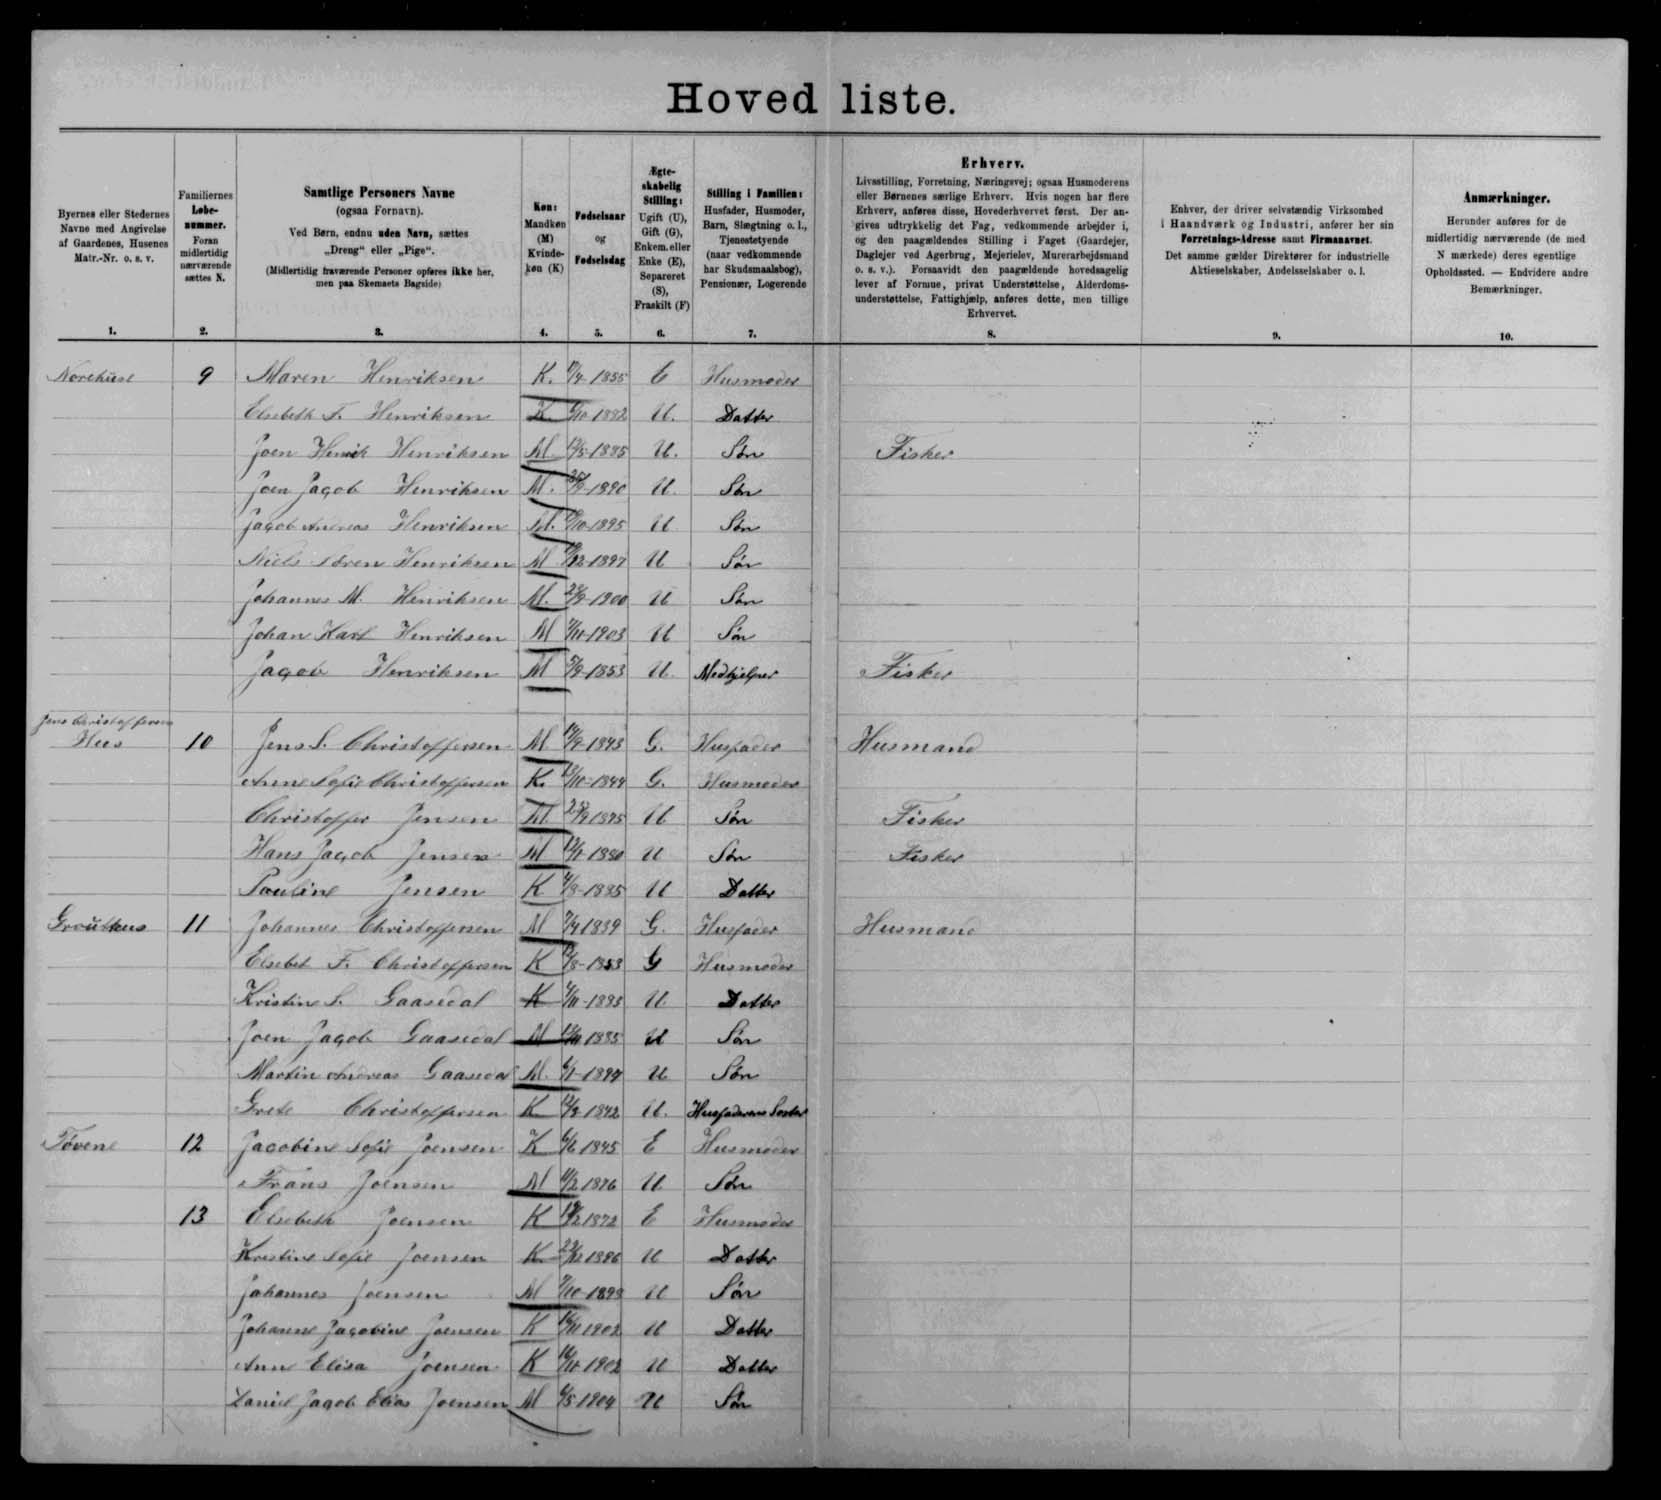 Hovedliste.
Byernes eller Stedernes
Navne med Angivelse
af Gaardenes, Husenes
Matr.-Nr. o. s. v.
1.
Familiernes
Løbe-
nummer.
Foran
midlertidig
nærværende
sættes N.
2.
Samtlige Personers Navne
(ogsaa Fornavn).
Ved Børn, endnu uden Navn, sættes
„Dreng“ eller „Pige“.
(Midlertidig fraværende Personer opføres ikke her,
men paa Skemaets Bagside)
3.
Køn:
Mandkøn
(M)
Kvinde-
køn (K)
4.
Fødselsaar
og
Fødselsdag
5.
Ægte-
skabelig
Stilling:
Ugift (U),
Gift (G),
Enkem. eller
Enke (E),
Separeret
(S),
Fraskilt (F)
6.
Stilling i Familien:
Husfader, Husmoder,
Barn, Slægtning o. l.,
Tjenestetyende
(naar vedkommende
har Skudsmaalsbog),
Pensionær, Logerende
7.
Erhverv.
Livsstilling, Forretning, Næringsvej; ogsaa Husmoderens
eller Børnenes særlige Erhverv. Hvis nogen har flere
Erhverv, anføres disse, Hovederhvervet først. Der an-
gives udtrykkelig det Fag, vedkommende arbejder i,
og den paagældendes Stilling i Faget (Gaardejer,
Daglejer ved Agerbrug, Mejerielev, Murerarbejdsmand
o. s. v.). Forsaavidt den paagældende hovedsagelig
lever af Formue, privat Understøttelse, Alderdoms-
understøttelse, Fattighjælp, anføres dette, men tillige
Erhvervet.
8.
Enhver, der driver selvstændig Virksomhed
i Haandværk og Industri, anfører her sin
Forretnings-Adresse samt Firmanavnet.
Det samme gælder Direktører for industrielle
Aktieselskaber, Andelsselskaber o. l.
9.
Anmærkninger.
Herunder anføres for de
midlertidig nærværende (de med
N mærkede) deres egentlige
Opholdssted. — Endvidere andre
Bemærkninger.
10.
9 Maren Henriksen K. 1855 E Husmoder
Elsebeth F. Henriksen K 1882 U. Datter
Joen Henrik Henriksen M. 1885 U. Søn Fisker
Joen Jagob Henriksen M. 25/9-1890 U. Søn
Jagob Andreas Henriksen M. 1895 U Søn
Niels Søren Henriksen M 1897 U Søn
Johannes M. Henriksen M. 1900 U Søn
Johan Karl Henriksen M 1903 U Søn
Jagob Henriksen M 5/9-1853 U. Medhjelper Fisker
Jens Christoffersens
Hus 10 Jens S. Christoffersen M. 1843 G. Husfader Husmand
Anne Sofie Christoffersen K. 1844 G. Husmoder
Christoffer Jensen M. 1875 U Søn Fisker
Hans Jagob Jensen M 1880 U Søn Fisker
Pauline Jensen K 1885 U Datter
11 Johannes Christoffersen M 1839 G. Husfader Husmand
Elsebet F. Christoffersen K 1853 G Husmoder
Kristine S. Gaasedal K 1883 U Datter
Joen Jagob Gaasedal M 1885 U Søn
Martin Andreas Gaasedal M. U Søn
Grete Christoffersen K 1842 U. Husfaderens Søster
12 Jacobine Sofie Joensen K 1845 E Husmoder
Frans Joensen M 1876 U Søn
13 Elsebeth Joensen K 1872 E Husmoder
Kristine Sofie Joensen K 1896 U Datter
Johannes Joensen M U Søn
Johanne Jagobine Joensen K 1902 U Datter
Anne Elisa Joensen K 1902 U Datter
Daniel Jagob Elias Joensen M 1904 U Søn